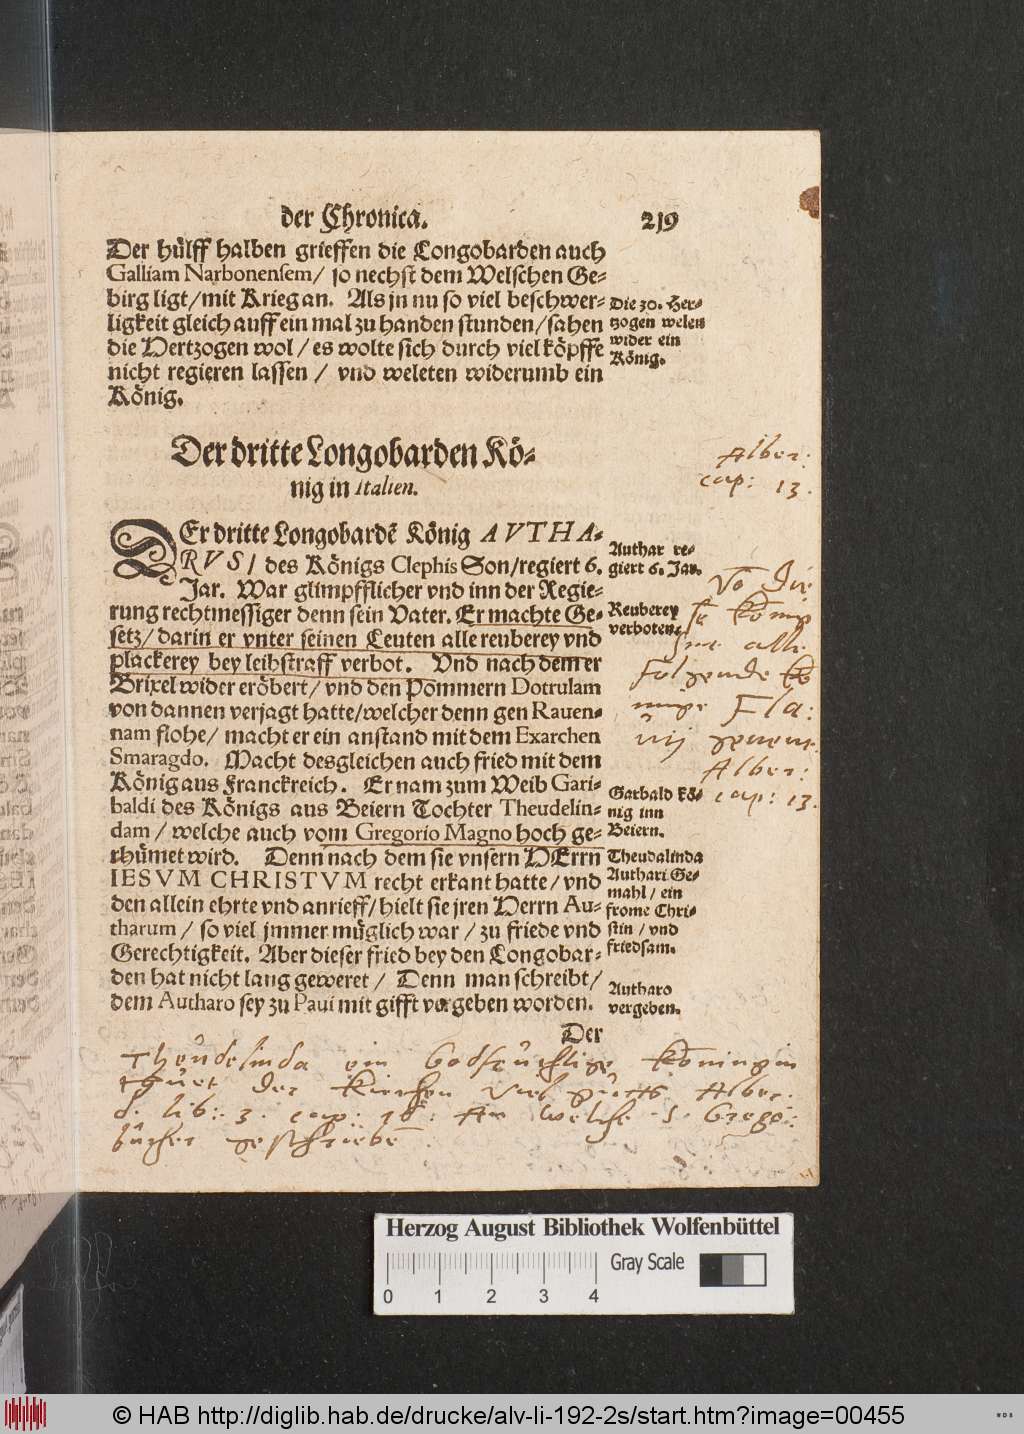 der Chronica. 219
Der hülff halben grieffen die Longobarden auch
Galliam Narbonensem/ so nechst dem Welschen Ge-
birg ligt/mit Krieg an. Als jn nu so viel beschwer-
ligkeit gleich auff ein mal zu handen stunden/sahen
die Hertzogen wol/es wolte sich durch viel köpffe
nicht regieren lassen/vnd weleten widerumb ein
König.
Die 30. Her-
tzogen welen
wider ein
König.
Der dritte Longobarden Kö-
nig in Italien.
Alber:
cap: 13.
DEr dritte Longobardē König AVTHA-
RVS/ des Königs Clephis Son/regiert 6.
Jar. War glimpfflicher vnd inn der Regie-
rung rechtmessiger denn sein Vater. Er machte Ge-
setz/darin er vnter seinen Leuten alle reuberey vnd
plackerey bey leibstraff verbot. Vnd nach dem er
Brixel wider eröbert/vnd den Pommern Dotrulam
von dannen verjagt hatte/welcher denn gen Rauen-
nam flohe/ macht er ein anstand mit dem Exarchen
Smaragdo. Macht desgleichen auch fried mit dem
König aus Franckreich. Er nam zum Weib Gari-
baldi des Königs aus Beiern Tochter Theudelin-
dam/welche auch vom Gregorio Magno hoch ge-
rhümet wird. Denn nach dem sie vnsern HErrn
IESVM CHRISTVM recht erkant hatte/vnd
den allein ehrte vnd anrieff/hielt sie jren Herrn Au-
tharum/ so viel jmmer müglich war/zu friede vnd
Gerechtigkeit. Aber dieser fried bey den Longobar-
den hat nicht lang geweret/ Denn man schreibt/
dem Autharo sey zu Paui mit gifft vergeben worden.
Der
Authar re-
giert 6. Jar.
Reuberey
verboten.
folgende
Alber:
cap: 13.
Garbald kö-
nig inn
Beiern.
Theudalinda
Authari Ge-
mahl/ein
frome Chri-
stin/vnd
friedsam.
Autharo
vergeben.
Theudelinda ein Godfürchtige Köningin
der Kirchen viel Alber.
d. lib: 3. cap: An welche S. Grego:
bücher geschriebē
Herzog August Bibliothek Wolfenbüttel
Gray Scale
0 1 2 3 4
© HAB http://diglib.hab.de/drucke/alv-li-192-2s/start.htm?image=00455